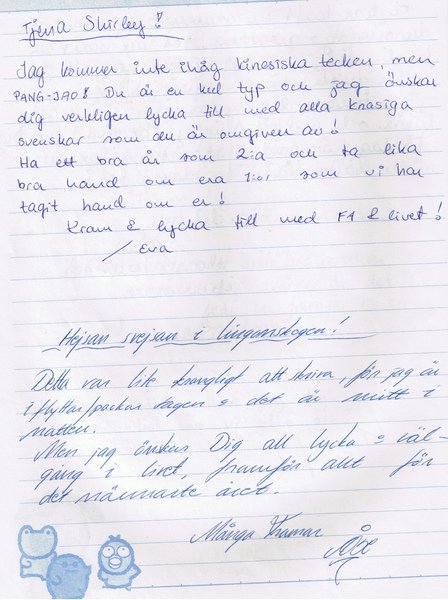 Tjena Shirley!
Jag kommer inte ihåg kinesiska tecken, men
PANG-JAO! Du är en kul typ och jag önskar
dig verkligen lycka till med alla knasiga
svenskar som du är omgiven av!
Ha ett bra år som 2:a och ta lika
bra hand om era 1:or som vi har
tagit hand om er!
Kram & lycka till med F1 & livet!
/Eva
Hejsan svejsan i lingonskogen!
Detta var lite krångligt att skriva, för jag är
i flyttar/packar tagen & det är mitt i
natten.
Men jag önskar Dig all lycka & väl-
gång i livet, framför allt för
det närmaste året.
Många Kramar